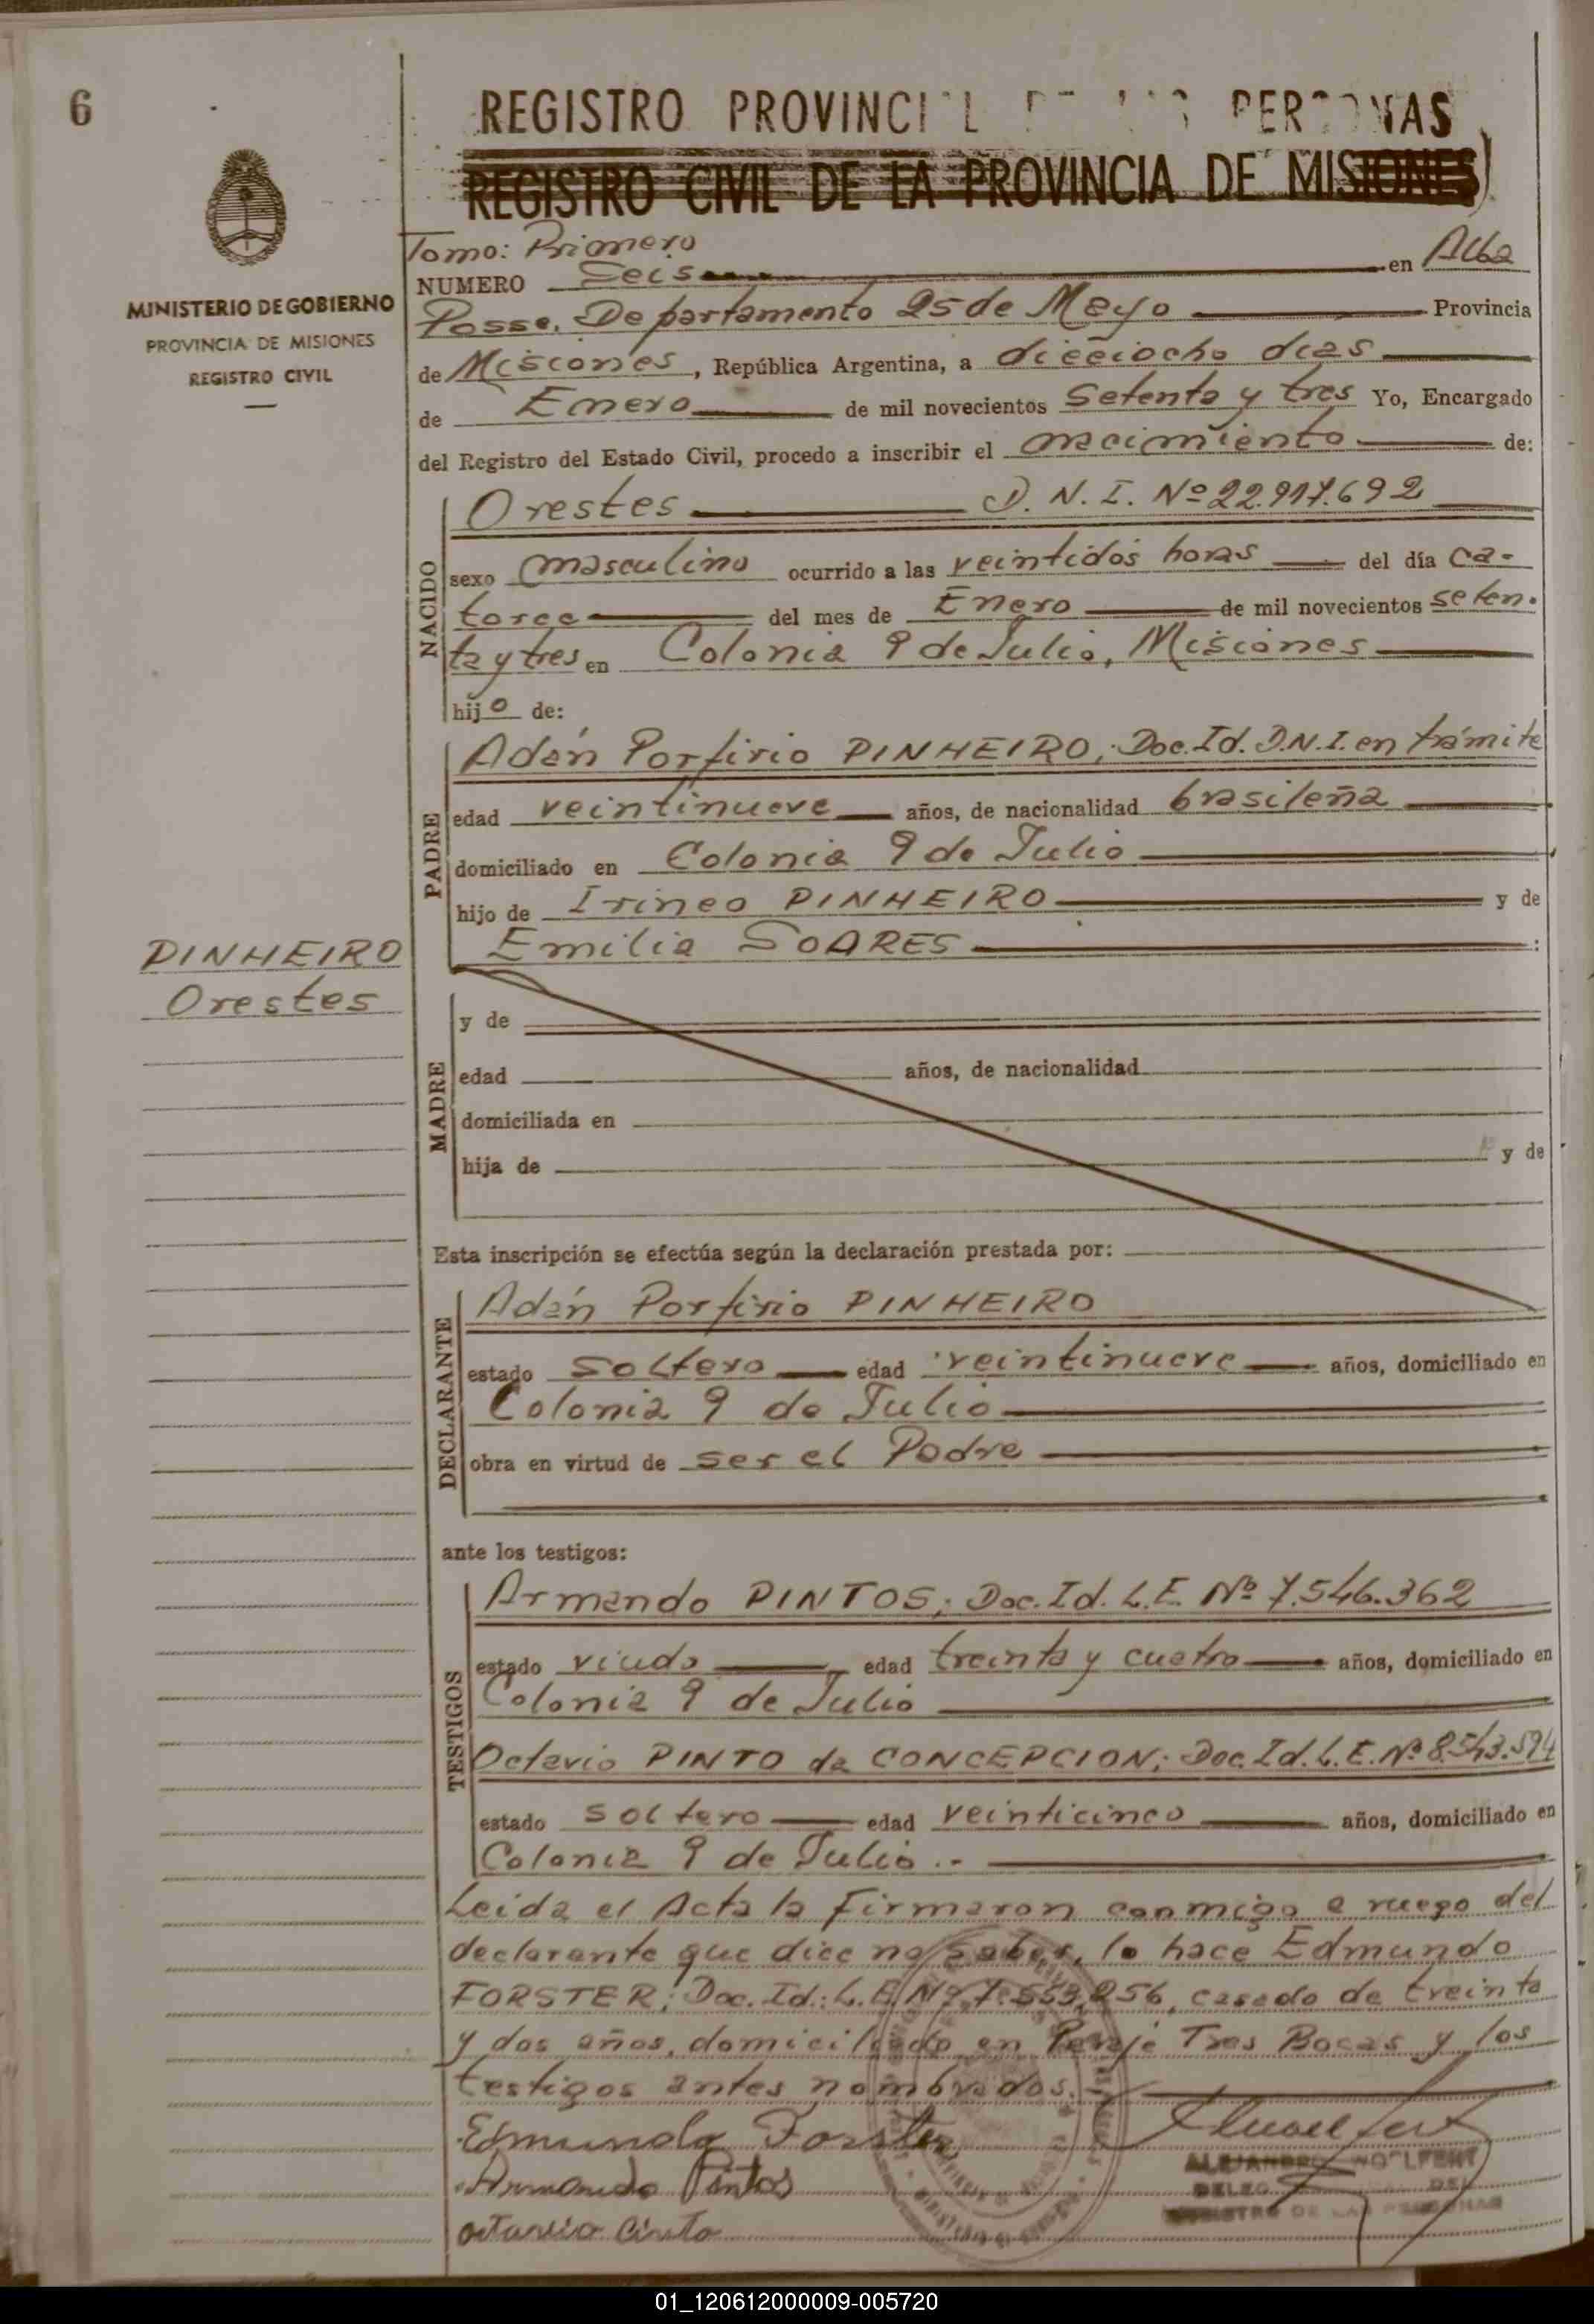 6
REGISTRO PROVINCIAL DE LAS PERSONAS
REGISTRO CIVIL DE LA PROVINCIA DE MISIONES
MINISTERIO DE GOBIERNO
PROVINCIA DE MISIONES
REGISTRO CIVIL
Tomo: Primero
NUMERO Seis en Alba
Posse, Departamento 25 de Mayo Provincia
de Misiones, República Argentina, a dieciocho dias
de Enero de mil novecientos Setenta y tres Yo, Encargado
del Registro del Estado Civil, procedo a inscribir el nacimiento de:
NACIDO
Orestes D.N.I. Nº 22.917.692
sexo masculino ocurrido a las veintidós horas del día ca-
torce del mes de Enero de mil novecientos seten-
ta y tres en Colonia 9 de Julio, Misiones
hijo de:
PADRE
Adán Porfirio PINHEIRO; Doc. Id. D.N.I. en trámite
edad veintinueve años, de nacionalidad brasileña
domiciliado en Colonia 9 de Julio
hijo de Irineo PINHEIRO y de
Emilia SOARES :
PINHEIRO
Orestes
MADRE
y de
edad años, de nacionalidad
domiciliada en
hija de y de
Esta inscripción se efectúa según la declaración prestada por:
DECLARANTE
Adán Porfirio PINHEIRO
estado soltero edad veintinueve años, domiciliado en
Colonia 9 de Julio
obra en virtud de ser el Padre
ante los testigos:
TESTIGOS
Armando PINTOS; Doc. Id. L.E. Nº 7.546.362
estado viudo edad treinta y cuatro años, domiciliado en
Colonia 9 de Julio
Octavio PINTO da CONCEPCION; Doc. Id. L.E. Nº 8.543.594
estado soltero edad veinticinco años, domiciliado en
Colonia 9 de Julio.-
Leida el Acta la Firmaron conmigo a ruego del
declarante que dice no saber, lo hace Edmundo
FORSTER; Doc. Id.: L.E. Nº 7.553.256, casado de treinta
y dos años, domiciliado en Paraje Tres Bocas y los
testigos antes nombrados.-
Edmundo Forster
Armando Pintos
octavio Pinto
ALEJANDRO WOLFERT
REGISTRO DE LAS PERSONAS
01_120612000009-005720